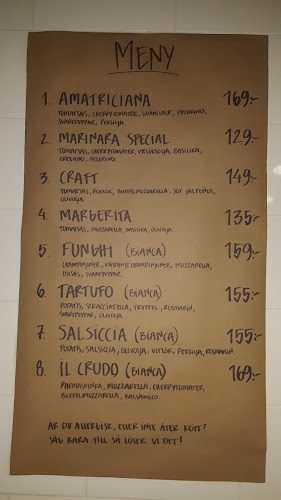 MENY
1. AMATRICIANA 169:-
TOMATSÅS, CHERRYTOMATER, GUANCIALE, PECORINO,
SVARTPEPPAR, PERSILJA
2. MARINARA SPECIAL 129:-
TOMATSÅS, CHERRYTOMATER, VITLÖKSOLJA, BASILIKA,
OREGANO, PECORINO
3. CRAFT 149:-
TOMATSÅS, RÖDLÖK, BUFFELMOZZARELLA, SÖT JALPEÑOS,
OLIVOLJA
4. MARGERITA 135:-
TOMATSÅS, MOZZARELLA, BASILIKA, OLIVOLJA
5. FUNGHI (BIANCA) 159:-
CHAMPINJONER, KARAMELLCHAMPINJONER, MOZZARELLA,
SVARTPEPPAR
6. TARTUFO (BIANCA) 155:-
POTATIS, STRACCIATELLA, TRYFFEL, ROSMARIN,
SVARTPEPPAR, OLIVOLJA
7. SALSICCIA (BIANCA) 155:-
POTATIS, SALSICCIA, OLIVOLJA, VITLÖK, PERSILJA, ROSMARIN
8. IL CRUDO (BIANCA) 169:-
PARMASKINKA, MOZZARELLA, CHERRYTOMATER,
BUFFELMOZZARELLA, BALSAMICO
ÄR DU ALLERGISK, ELLER INTE ÄTER KÖTT?
SÄG BARA TILL SÅ LÖSER VI DET!